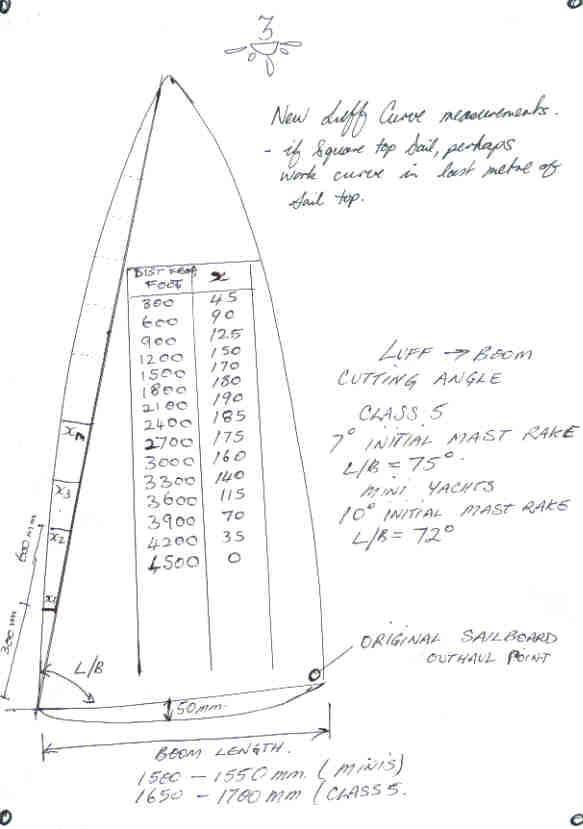 3
New Luff Curve measurements.
- if Square top Sail, perhaps
work curve in last metre of
sail top.
DIST FROM FOOT x
300 45
600 90
900 125
1200 150
1500 170
1800 180
2100 190
2400 185
2700 175
3000 160
3300 140
3600 115
3900 70
4200 35
4500 0
LUFF → BOOM
CUTTING ANGLE
CLASS 5
7° INITIAL MAST RAKE
L/B = 75°.
MINI YACHTS
10° INITIAL MAST RAKE
L/B = 72°
x3
x2
600 mm
300 mm
L/B
ORIGINAL SAILBOARD
OUTHAUL POINT
50mm.
BOOM LENGTH.
1500 - 1550 mm. (MINIS)
1650 - 1700 mm (CLASS 5.